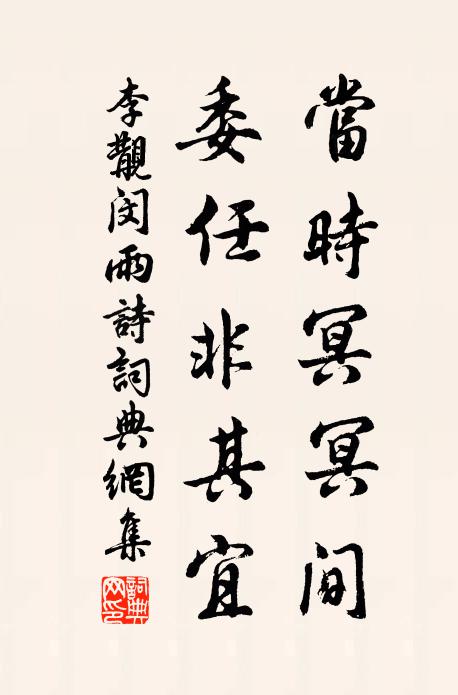 當時冥冥間
委任非其宜
李覯閔雨詩詞典網集
詞典网印